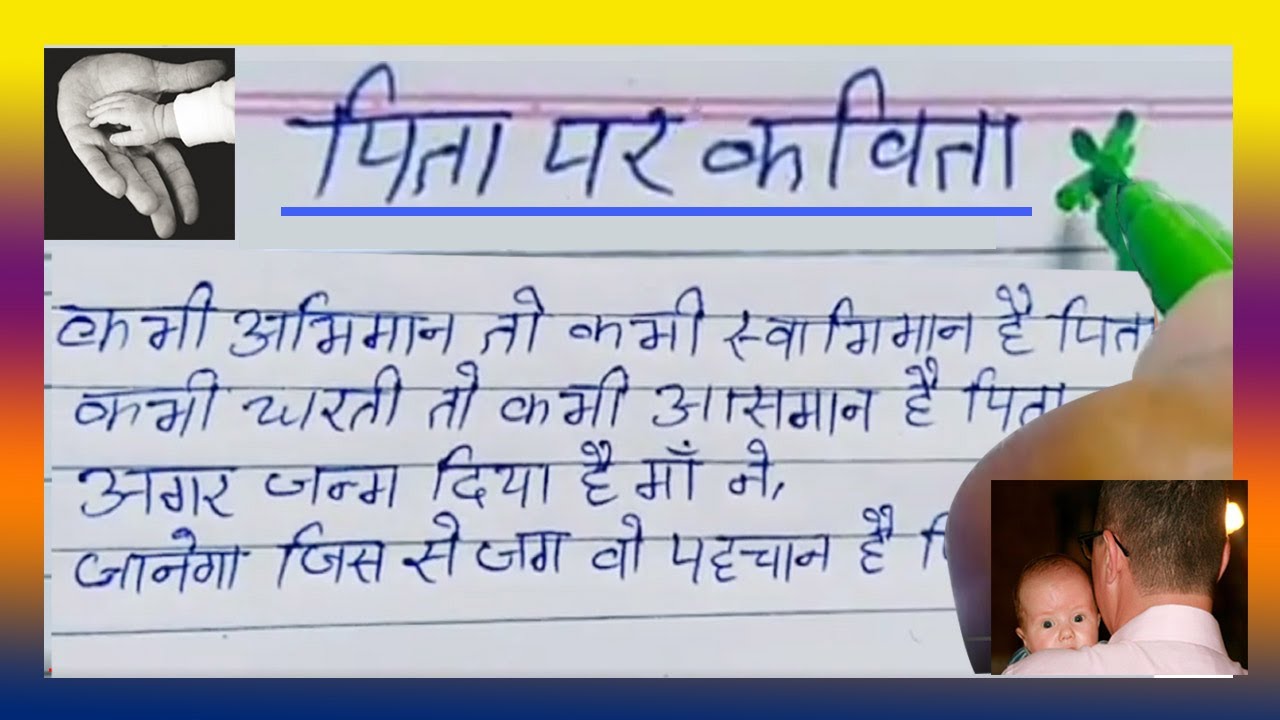 पिता पर कविता
कभी अभिमान तो कभी स्वाभिमान है पिता
कभी धरती तो कभी आसमान है पिता
अगर जन्म दिया है माँ ने,
जानेगा जिस से जग वो पहचान है